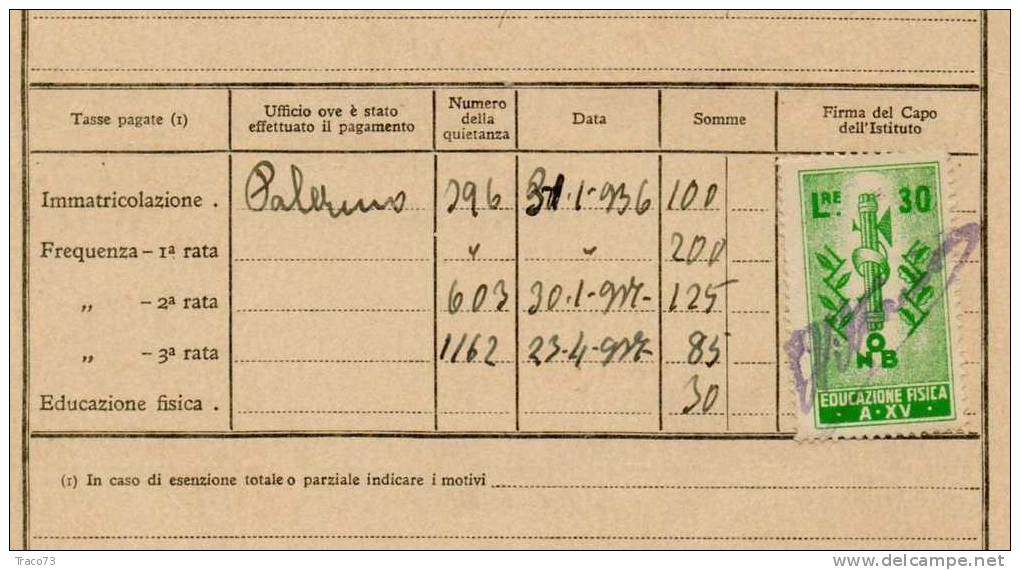 Tasse pagate (1) Ufficio ove è stato effettuato il pagamento Numero della quietanza Data Somme Firma del Capo dell'Istituto
Immatricolazione . Palermo 296 31-1-936 100
Frequenza - 1ª rata " " 200
„ - 2ª rata 603 30-1-937 125
„ - 3ª rata 1162 23-4-937 85
Educazione fisica . 30
LRE. 30
O
N B
EDUCAZIONE FISICA
· A · XV ·
(1) In caso di esenzione totale o parziale indicare i motivi
Traco73
delcampe.net